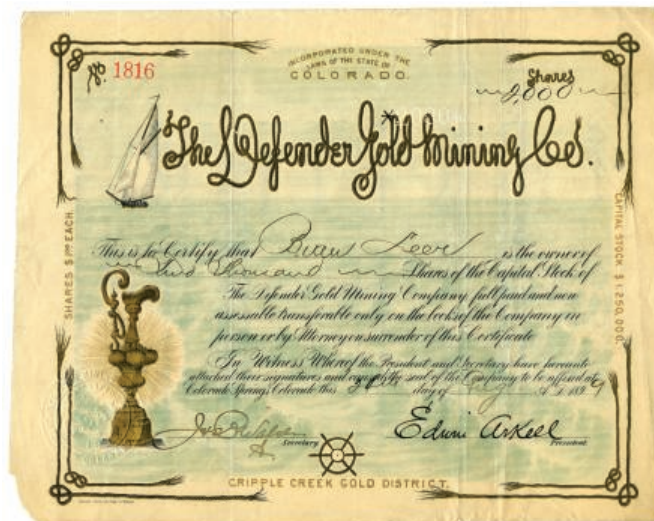 No. 1816
INCORPORATED UNDER THE
LAWS OF THE STATE OF
COLORADO.
Shares
2,000
The Defender Gold Mining Co.
SHARES $1.00 EACH.
CAPITAL STOCK $1,250,000.
This is to Certify that is the owner of
Two Thousand Shares of the Capital Stock of
The Defender Gold Mining Company full paid and non
assessable transferable only on the books of the Company in
person or by Attorney on surrender of this Certificate
In Witness Whereof the President and Secretary have hereunto
attached their signatures and caused the seal of the Company to be affixed at
Colorado Springs Colorado this day of A.D. 189
Secretary
Edwin Arkell
President.
CRIPPLE CREEK GOLD DISTRICT.